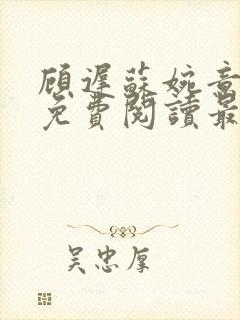 顧遲蘇婉音
免費閱讀最
吴忠厚